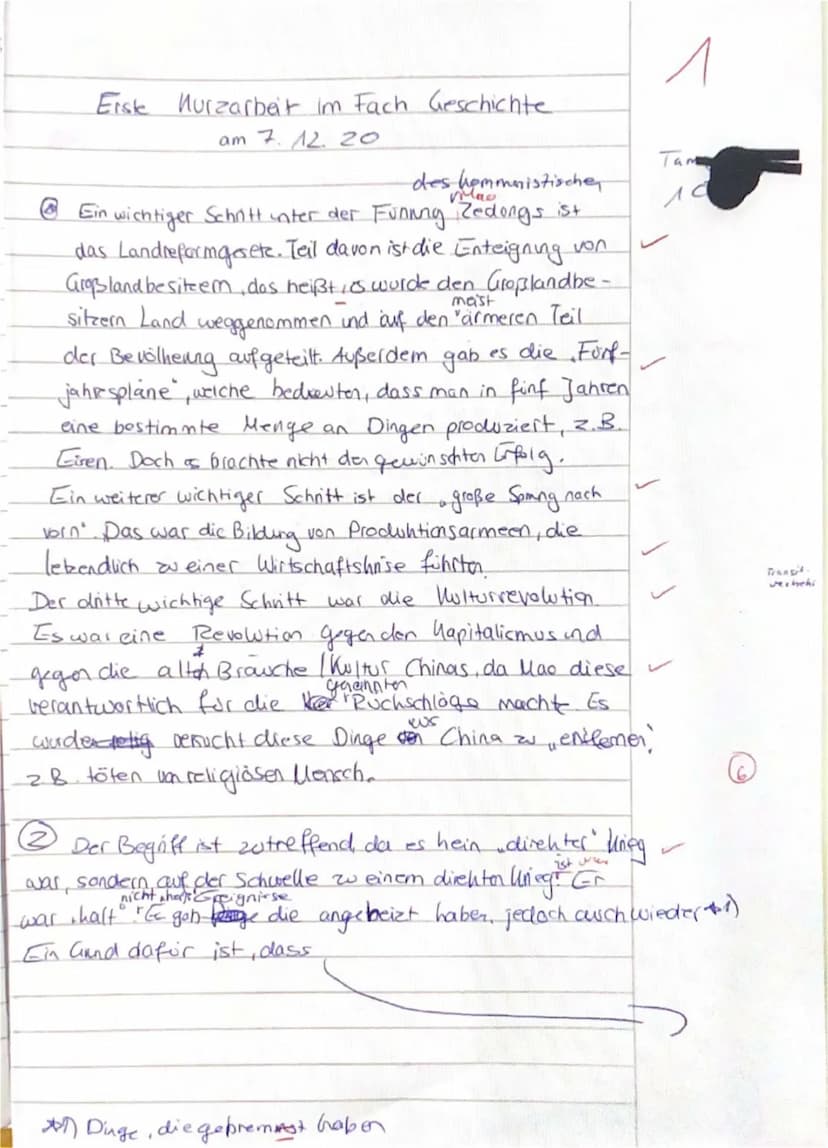 1
Erste Kurzarbeit im Fach Geschichte
am 7. 12. 20
Tam
1
des kommunistischen
① Ein wichtiger Schritt unter der Führung Mao Zedongs ist
das Landreformgesetz. Teil davon ist die Enteignung von
Großlandbesitzern, das heißt, es wurde den Großlandbe-
sitzern Land weggenommen und auf den meist ärmeren Teil
der Bevölkerung aufgeteilt. Außerdem gab es die „Fünf-
jahrespläne", welche bedeuten, dass man in fünf Jahren
eine bestimmte Menge an Dingen produziert, z.B.
Eisen. Doch es brachte nicht den gewünschten Erfolg.
Ein weiterer wichtiger Schritt ist der „große Sprung nach
vorn". Das war die Bildung von Produktionsarmeen, die
letzendlich zu einer Wirtschaftskrise führten.
Transit-
verkehr
Der dritte wichtige Schritt war die Kulturrevolution.
Es war eine Revolution gegen den Kapitalismus und
gegen die alten Bräuche / Kultur Chinas, da Mao diese
verantwortlich für die genannten Rückschläge macht. Es
wurde versucht diese Dinge aus China zu „entfernen",
z.B. töten von religiösen Mensch.
6
② Der Begriff ist zutreffend, da es kein „direkter" Krieg
war, sondern auf der Schwelle zu einem direkten Krieg ist war. Er
war „kalt", nicht „heiß". Es gab Ereignisse die angeheizt haben, jedoch auch wieder *1)
Ein Grund dafür ist, dass
*1) Dinge, die gebremst haben